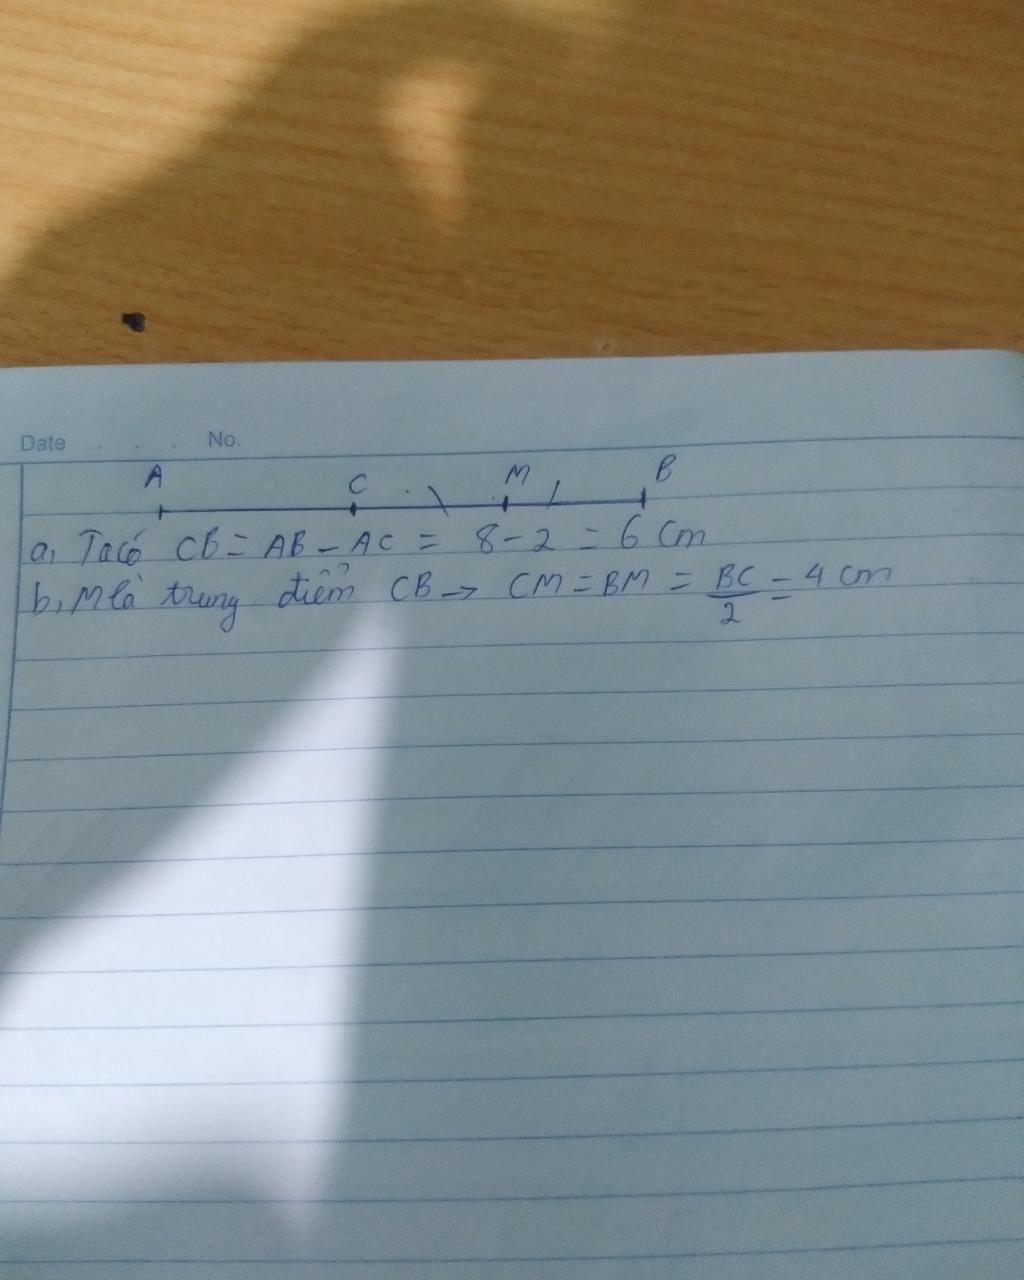 Date . . . No.
A C M B
a, Ta có CB = AB - AC = 8 - 2 = 6 cm
b, M là trung điểm CB → CM = BM = BC/2 = 4 cm